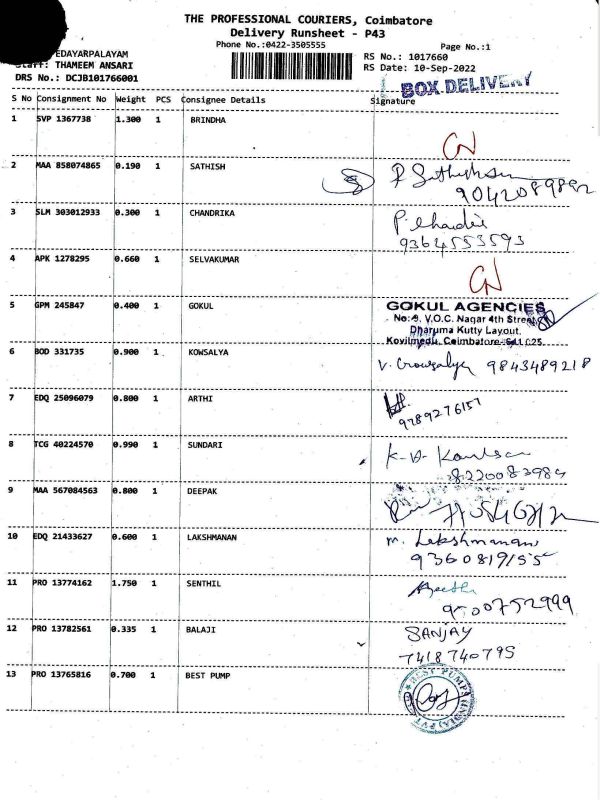 THE PROFESSIONAL COURIERS, Coimbatore
Delivery Runsheet - P43
Phone No.:0422-3505555
Page No.:1
EDAYARPALAYAM
RS No.: 1017660
Staff: THAMEEM ANSARI
RS Date: 10-Sep-2022
DRS No.: DCJB101766001
BOX DELIVERY
S No Consignment No Weight PCS Consignee Details Signature
1 SVP 1367738 1.300 1 BRINDHA
CN
2 MAA 858074865 0.190 1 SATHISH
9042089892
3 SLM 303012933 0.300 1 CHANDRIKA
9364553593
4 APK 1278295 0.660 1 SELVAKUMAR
CN
5 GPM 245847 0.400 1 GOKUL GOKUL AGENCIES
No:9, V.O.C. Nagar 4th Street,
Dharuma Kutty Layout,
Kovilmedu, Coimbatore-641 025.
6 BOD 331735 0.900 1 KOWSALYA
V. Cowsalya 9843489218
7 EDQ 25096079 0.800 1 ARTHI
9789276157
8 TCG 40224570 0.990 1 SUNDARI
8220083984
9 MAA 567084563 0.800 1 DEEPAK
10 EDQ 21433627 0.600 1 LAKSHMANAN M. Lakshmanan
9360819155
11 PRO 13774162 1.750 1 SENTHIL
9500752999
12 PRO 13782561 0.335 1 BALAJI SANJAY
7418740795
13 PRO 13765816 0.700 1 BEST PUMP
BEST PUMPS (INDIA) PVT